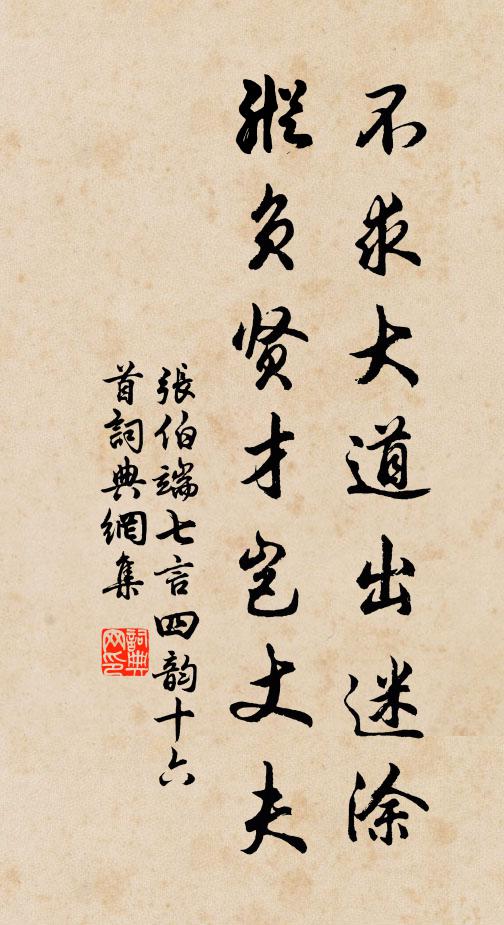 不求大道出迷涂
縱负贤才岂丈夫
張伯端七言四韵十六
首詞典網集
詞典
网印